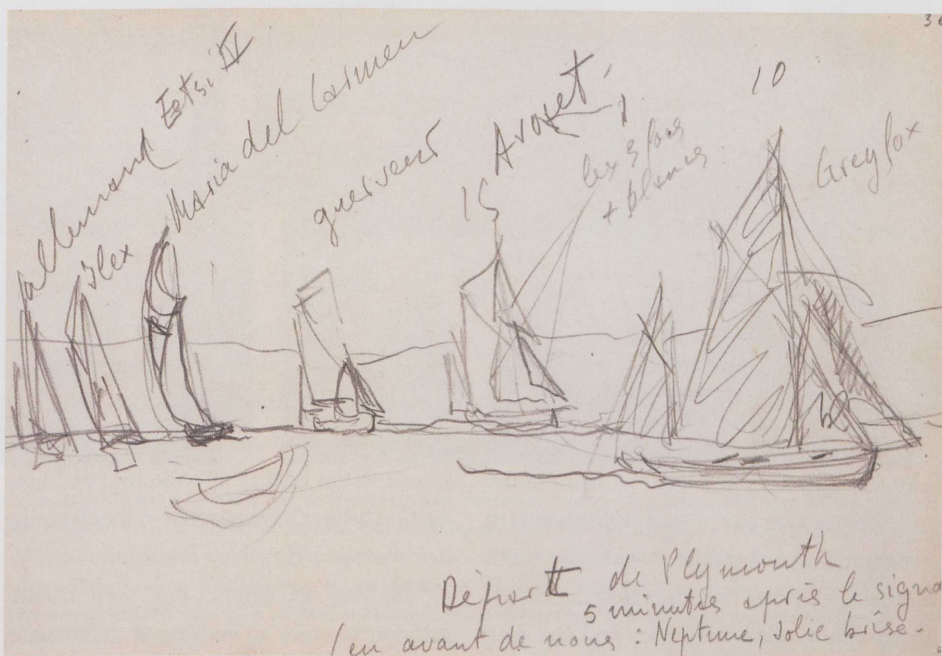 36
allemand Eetsi IV
Ilex
Maria del Carmen
guerveur
15
Avocet,
les 3 focs
+ blancs
10
Greyfox
Départ de Plymouth
5 minutes après le signa
(en avant de nous : Neptune, Jolie brise.